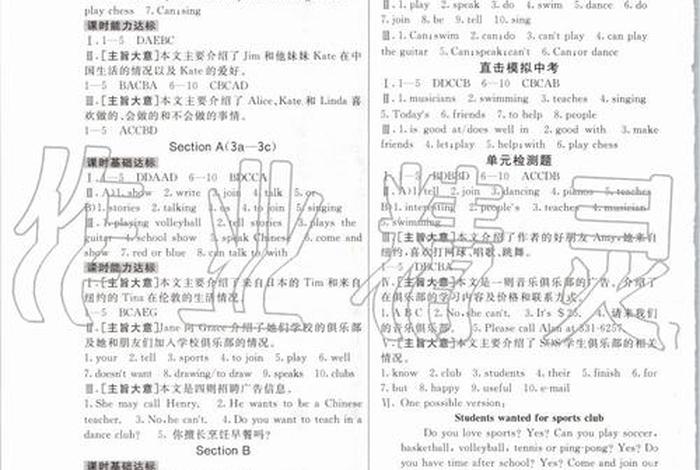 play chess　7. Can;sing
课时能力达标
Ⅰ. 1—5　DAEBC
Ⅱ. [主旨大意]本文主要介绍了 Jim 和他妹妹 Kate 在中
国生活的情况以及 Kate 的爱好。
1—5　BACBA　6—10　CBCAD
Ⅲ. [主旨大意]本文主要介绍了 Alice、Kate 和 Linda 喜
欢做的、会做的和不会做的事情。
1—5　ACCBD
Section A(3a—3c)
课时基础达标
Ⅰ. 1—5　DDAAD　6—10　BDCCA
Ⅱ. A)1. show　2. write　3. join　4. talk　5. or
B)1. stories　2. talking　3. us　4. to join　5. singing
Ⅲ. 1. playing volleyball　2. tell stories　3. plays the
guitar　4. school show　5. speak Chinese　6. come and
show　7. red or blue　8. can talk to/with
课时能力达标
Ⅰ. [主旨大意]本文主要介绍了来自日本的 Tim 和来自
纽约的 Tina 在伦敦的生活情况。
1—5　BCAEG
Ⅱ. [主旨大意]Jane 向 Grace 介绍了她们学校的俱乐部
及她和朋友们加入学校俱乐部的情况。
1. your　2. tell　3. sports　4. to join　5. play　6. well
7. doesn't want　8. drawing/to draw　9. speaks　10. clubs
Ⅲ. [主旨大意]本文是四则招聘广告信息。
1. She may call Henry.　2. He wants to be a Chinese
teacher.　3. No, he can't.　4. Do you want to teach in a
dance club?　5. 你擅长烹饪早餐吗?
Section B
课时基础达标
Ⅱ. 1. play　2. speak　3. do　4. swim　5. dance　6. do
7. join　8. be　9. tell　10. sing
Ⅲ. 1. Can;swim　2. can;do　3. can't play　4. can play
the guitar　5. Can;speak;can't　6. Can;or dance
直击模拟中考
Ⅰ. 1—5　DDCCB　6—10　CBCAB
Ⅱ. 1. musicians　2. swimming　3. teaches　4. singing
5. Today's　6. friends　7. to help　8. people
Ⅲ. 1. is good at/does well in　2. good with　3. make
friends　4. let;play　5. help;with　6. play chess
单元检测题
Ⅰ. 1—5　BDBBD　6—10　ACCDB
Ⅱ. A)1. tell　2. join　3. dancing　4. pianos　5. teaches
B)1. interesting　2. people's　3. teaches　4. musician
5. swimming
Ⅲ. [主旨大意]本文介绍了作者的好朋友 Amy,她来自
纽约,喜欢打网球、唱歌、跳舞。
1—5　DECBA
Ⅳ. [主旨大意]本文是一则音乐俱乐部的广告。介绍了
在俱乐部的学习内容及价格和联系方式。
1. A B C　2. No, she can't.　3. It's ＄25.　4. 请来我们
的音乐俱乐部。　5. Please call Alan at 531-6257.
Ⅴ. [主旨大意]本文主要介绍了 SOS 学生俱乐部的相关
情况。
1. know　2. club　3. students　4. their　5. finish　6. for
7. but　8. happy　9. useful　10. e-mail
Ⅵ. One possible version:
Students wanted for sports club
Do you love sports? Yes? Can you play soccer,
basketball, volleyball, tennis or ping-pong? Yes? Do
you have time after school? Yes? Come and join our
作业精灵